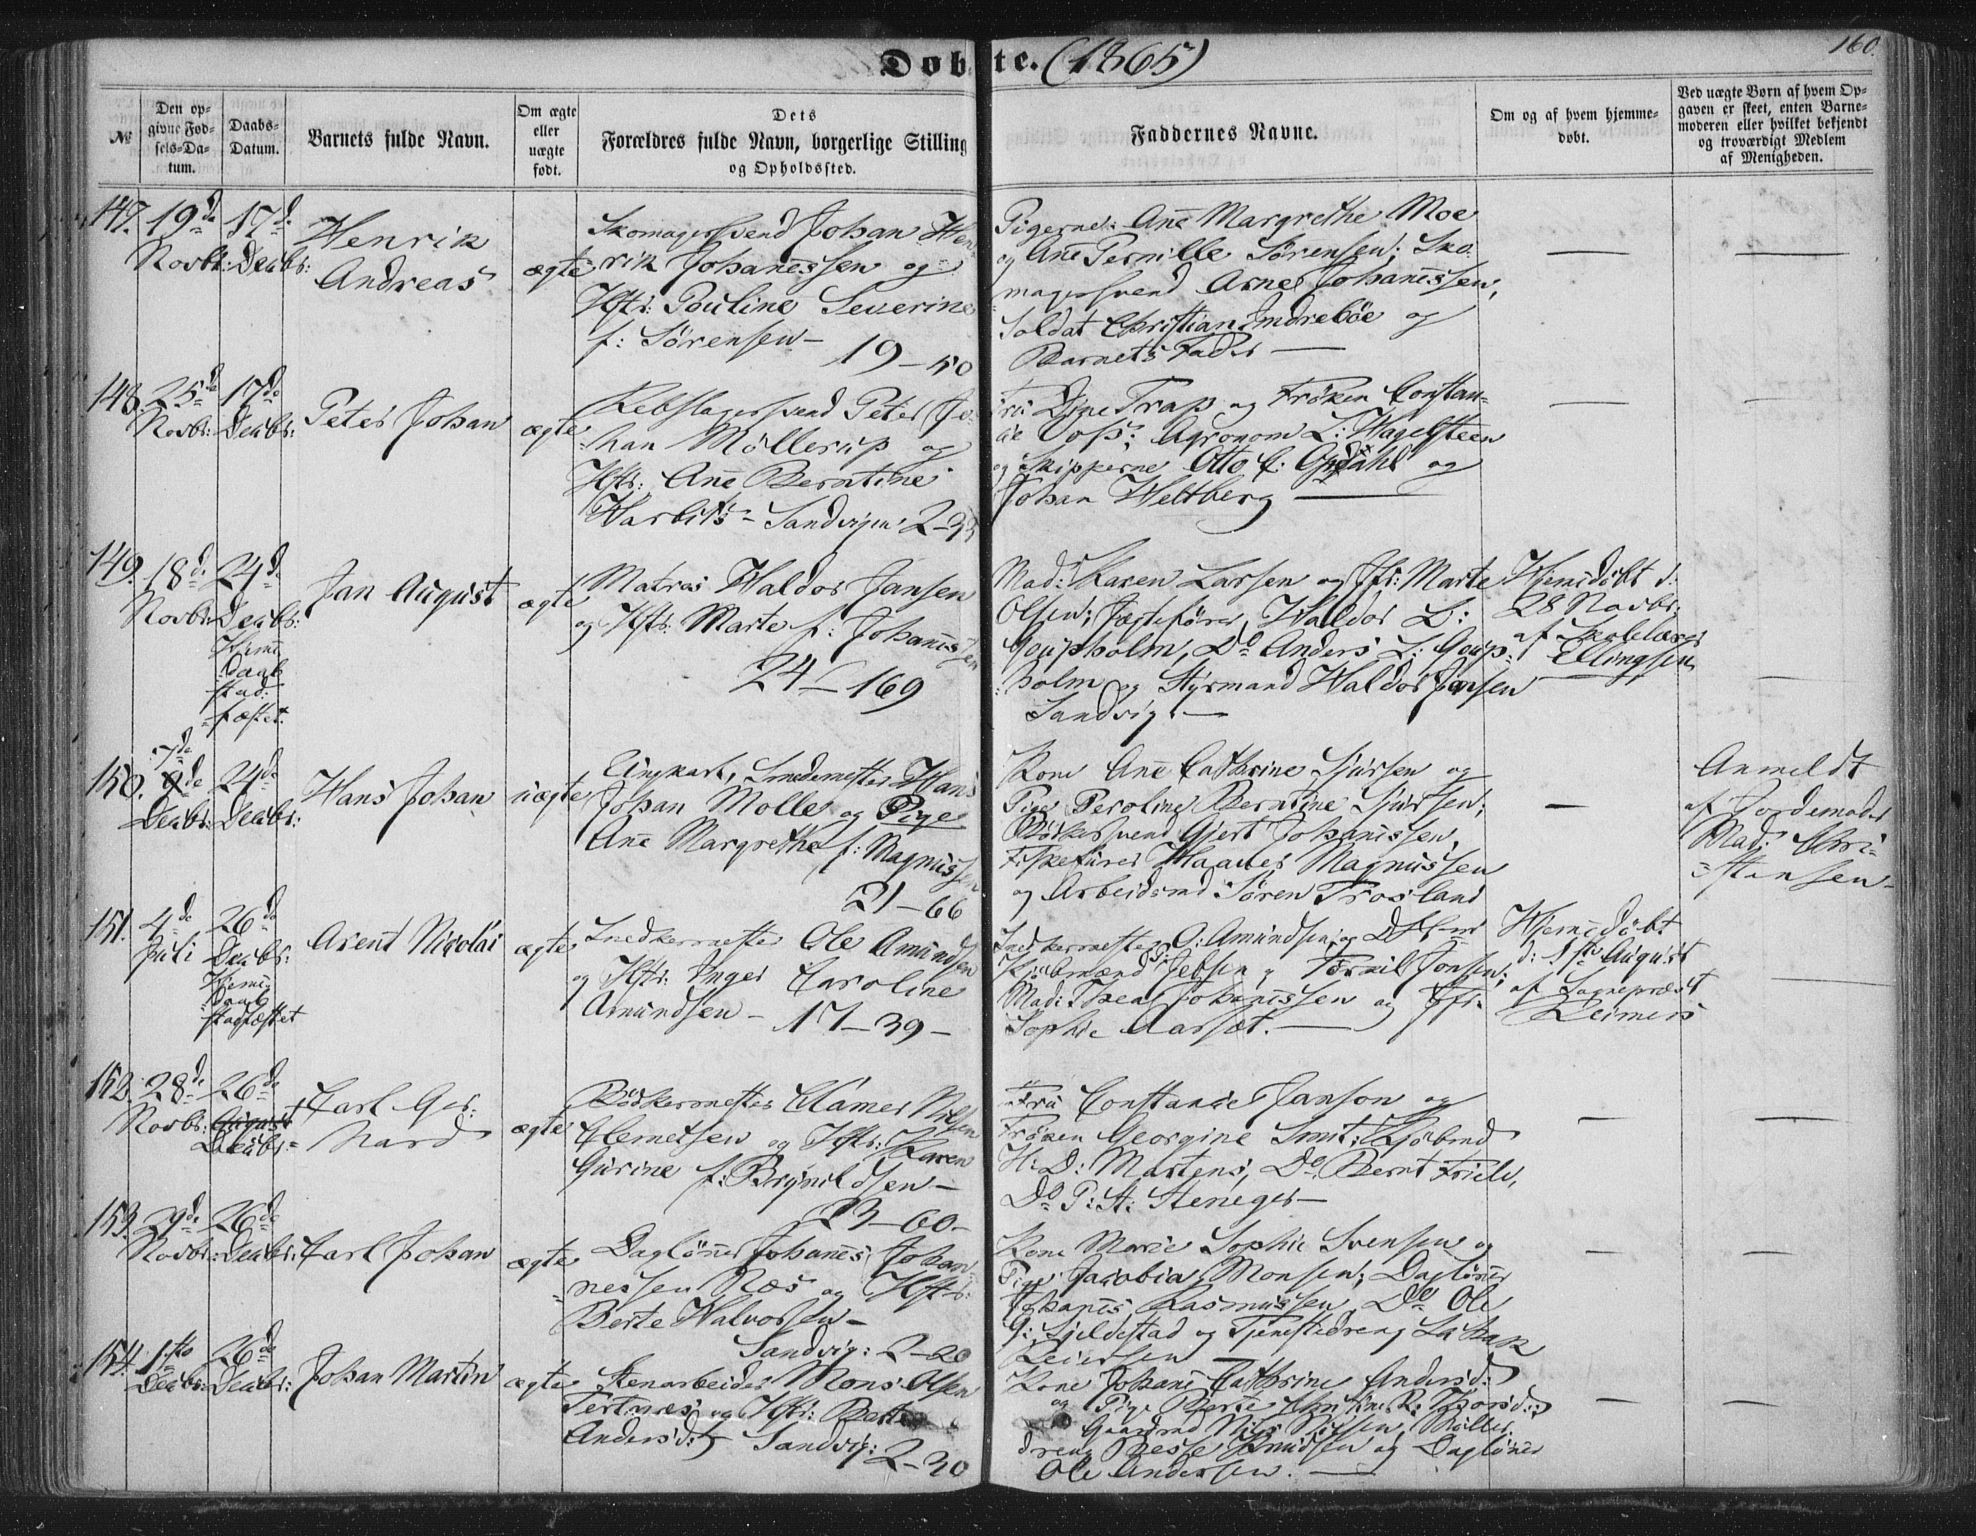 Døbte. (1865)
160.
№
Den opgivne Fødsels-Datum.
Daabs-Datum.
Barnets fulde Navn.
Om ægte eller uægte født.
Dets Forældres fulde Navn, borgerlige Stilling og Opholdssted.
Faddernes Navne.
Om og af hvem hjemmedøbt.
Ved uægte Børn af hvem Opgaven er skeet, enten Barnemoderen eller hvilket bekjendt og troværdigt Medlem af Menigheden.
147. 19de Novbr: 17de Decbr:
Henrik
Andreas
ægte
Skomagersvend Johan Hen
rik Johannessen og
Hstr: Pouline Severine
f: Sørensen –
19 – 50
Pigerne: Ane Margrethe Moe
og Ane Pernille Sørensen; Sko
magersvend Arne Johannessen,
Soldat Christian Indrebøe og
Barnets Fader —
148. 25de Novbr: 17de Decbr:
Peter Johan
ægte
Rebslagersvend Peter Jo-
han Möllerup og
Hstr: Ane Berntine
Harbitz – Sandvigen 2-33
Fru Dine Trap og Frøken Constan-
cie Voss; Agronom L: Hagelsteen
og Skipperne Otto C: Opdahl og
Johan Weltberg —
149. 18de Novbr: 24de Decbr:
Hjemmedaab
stad-
fæstet.
Jan August
ægte
Matros Haldor Jansen
og Hstr: Marte f: Johannessen
24 – 169
Mad: Karen Larsen og Jfr: Marte
Olsen; Jægtefører Haldor L:
Goupholm, Do Anders L: Goup-
holm og Styrmand Haldor Jansen
Sandvig. —
Hjemdøbt d:
28 Novbr:
af Skolelærer
Ellingsen
150. 7de Decbr: 24de Decbr:
Hans Johan
uægte
Ungkarl, Smedemester Hans
Johan Molle og Pige
Ane Margrethe f: Magnussen
21 – 66
Kone Ane Cathrine Sjursen og
Pige Peroline Berntine Sjursen;
Bødkersvend Gjert Johannessen,
Fiskefører Haaver Magnussen
og Arbeidsmd Søren Frosland
Anmeldt
af Jordemoder
Mad: Chri-
stansen –
151. 4de Juli 26de Decbr:
Hjemmedaab
stadfæstet
Arent Nicolai
ægte
Snedkermester Ole Amundsen
og Hstr: Inger Caroline
Amundsen – 17 – 39 –
Snedkermester O: Amundsen; og
Kjøbmænd Jebsen, Tormil Jonsen;
Mad: Thea Johannessen og Jfr:
Sophie Aarsæt. —
Hjemedøbt
d: 1ste August
af Sognepræst
Reimers
152. 28de Novbr: 26de August Decbr:
Carl Ger-
hard
ægte
Bødkermester Clamer Nilsen
Clemetsen og Hstr: Karen
Gurine f: Brynildsen –
23 – 60 –
Fru Constance Janson og
Frøken Georgine Smit; Kjøbmd
H: D: Martens, Do Bernt Friele,
Do P: A: Steneger –
153. 29de Novbr: 26de Decbr:
Carl Johan
ægte
Dagløner Johanes Johan-
nessen Næs og Hstr:
Berte Halvorsen –
Sandvig: 2 – 20
Kone Marie Sophie Svensen og
Pige Jacobia Monsen; Dagløner
Johanes Rasmussen, Do Ole
G: Sjeldestad og Tjenestedreng
Reiersen —
154. 1ste Decbr: 26de Decbr:
Johan Martin
ægte
Stenarbeider Mons Olsen
Tertnæs og Hstr: Berte
Andersd: Sandvig: 2 – 30
Kone Johane Cathrine Andersd:
og Pige Berte R: Thorsd:;
Gaardmd Nils Nilsen, Møller
dreng Nesse Knudsen og Dagløner
Ole Andersen. —